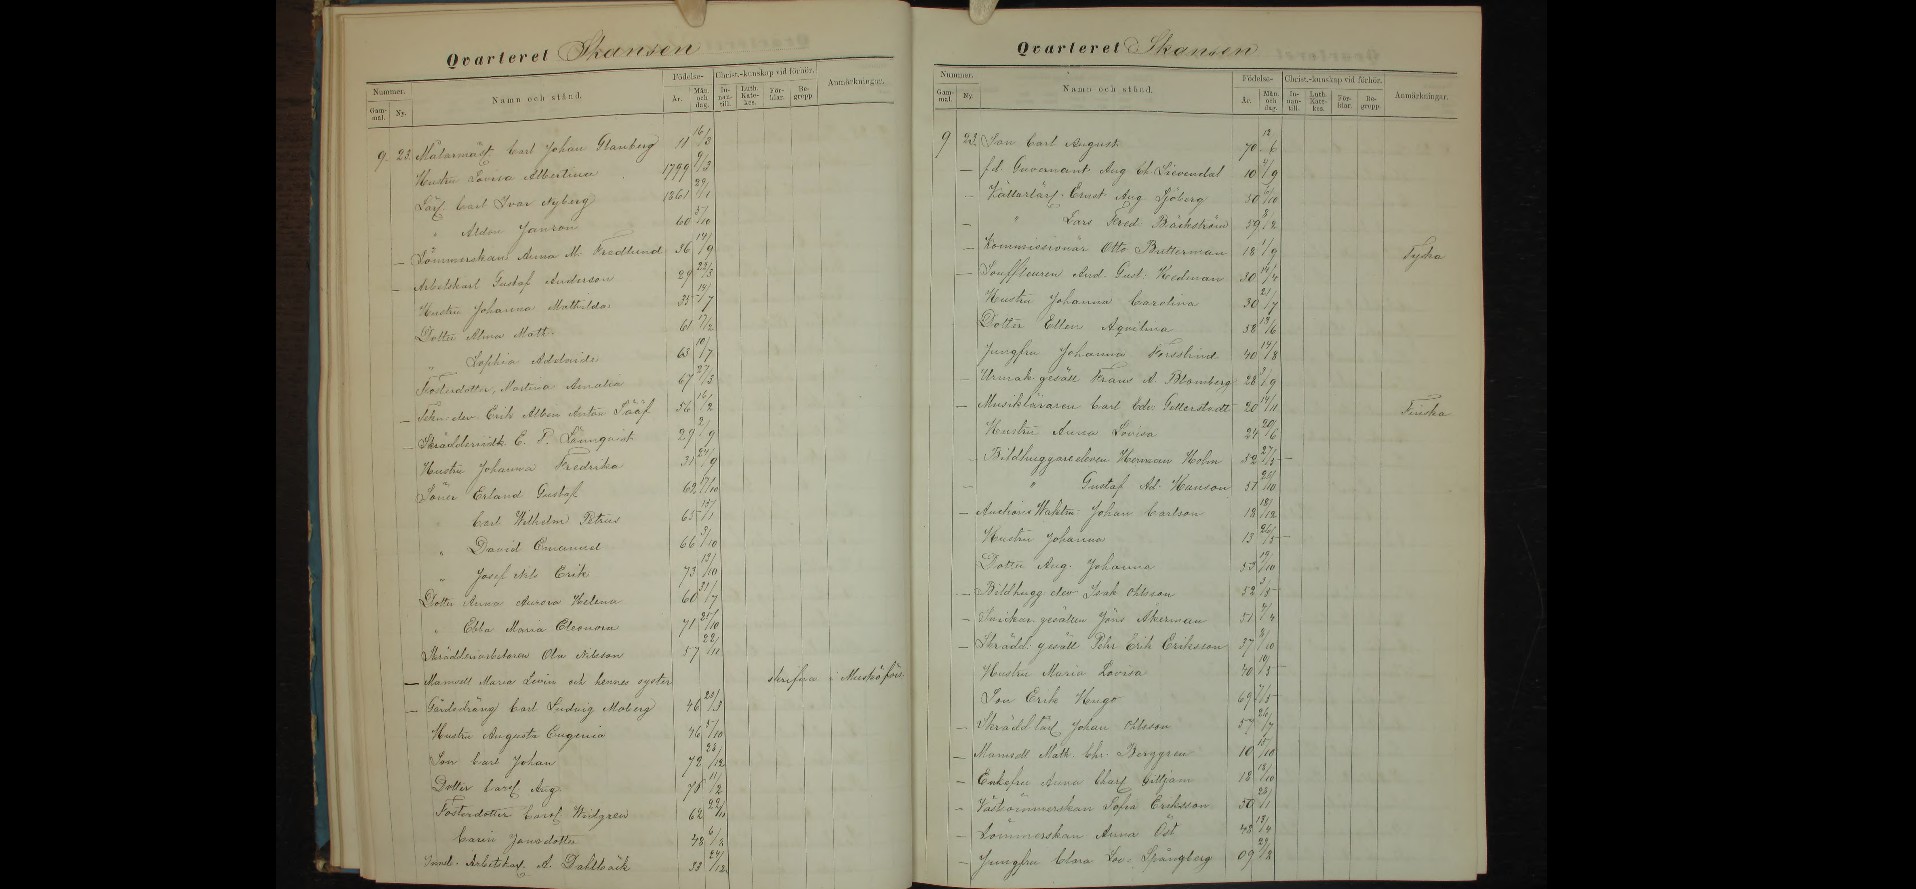 Qvarteret Skansen
Nummer. Namn och stånd. Födelse- Christ.-kunskap vid förhör. Anmärkningar.
Gammal. Ny. År. Mån. och dag. Innantill. Luth. Katekes. Förklar. Begrepp
9 23 Målarmäst Carl Johan Glanberg 11 16/3
Hustru Lovisa Albertina 1799 9/3
Lärl. Carl Ivar Nyberg 1861 29/1
" Aldon Janson 60 5/10
— Sömmerskan Anna M. Fredlund 36 14/9
— Arbetskarl Gustaf Anderson 29 22/3
Hustru Johanna Mathilda 35 14/7
Dotter Alma Math. 61 17/2
" Sophia Adelaide 65 10/7
Fosterdotter, Martina Amalia 67 27/3
— Tekn. elev. Erik Albin Anton Lööf 56 16/2
— Skräddermästr E. P. Lönnqvist 29 2/9
Hustru Johanna Fredrika 31 24/9
Söner Erland Gustaf 62 17/10
" Carl Wilhelm Petrus 65 15/1
" David Emanuel 66 3/10
" Josef Nils Erik 73 13/10
Dotter Anna Aurora Helena 60 31/7
" Ebba Maria Eleonora 71 25/10
Skrädderiarbetaren Ola Nilsson 57 22/11
— Mamsell Maria Levin och hennes syster skrifva i Muskö förs.
— Gårdsdräng Carl Ludvig Moberg 46 20/3
Hustru Augusta Eugenia 46 5/10
Son Carl Johan 72 23/12
Dotter Carol. Aug. 75 11/2
Fosterdotter Carol. Widgren 62 29/11
Carin Jansdotter 48 6/2
Arbetskarl A. Dahlbäck 33 24/12
Qvarteret Skansen
Nummer. Namn och stånd. Födelse- Christ.-kunskap vid förhör. Anmärkningar.
Gammal. Ny. År. Mån. och dag. Innantill. Luth. Katekes. Förklar. Begrepp
9 23 Son Carl August 70 12/6
— f.d. Guvernant Aug. Ch. Lievendal 10 4/9
— Ernst Aug. Sjöberg 50 6/10
— " Lars Fred. Bäckström 59 8/2
— Kommissionär Otto Butterman 18 1/9 Tyska
— Souffleuren And. Gust. Hedman 30 14/4
Hustru Johanna Carolina 30 21/7
Dotter Ellen Aqvilina 58 18/6
Jungfru Johanna Forsslund 40 14/8
— Urmak. gesäll Frans A. Blomberg 28 3/9
— Musikläraren Carl Edv. Getterstedt 20 14/11 Finska
Hustru Anna Lovisa 24 20/6
— Bildhuggareeleven Herman Holm 52 27/5 —
— " Gustaf Ad. Hanson 51 24/10
— Auctions Waktm. Johan Carlson 12 18/12
Hustru Johanna 13 26/5 —
Dotter Aug. Johanna 53 19/10
— Bildhugg. elev Isak Ohlsson 52 3/5
— Snickar gesällen Jöns Åkerman 51 7/4
— Skrädd. gesäll Pehr Erik Eriksson 37 3/10
Hustru Maria Lovisa 40 10/5
Son Erik Hugo 69 7/5
— Skrädd. lärl. Johan Ohlsson 57 24/7
— Mamsell Math. Chr. Berggren 10 15/10
— Enkefru Anna Charl. Gilljam 18 18/10
— Västsömmerskan Sofia Eriksson 50 28/1
— Sömmerskan Anna Öst 48 13/4
— Jungfru Clara Lov. Spångberg 09 29/8